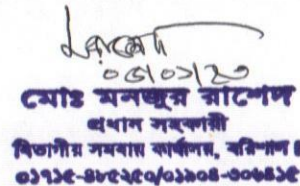 ০৫/০১/২০
মোঃ মনজুর রাশেদ
প্রধান সহকারী
বিভাগীয় সমবায় কার্যালয়, বরিশাল
০১৭১৫-৪৮৫২৫০/০১৯০৪-৭০৬৪১৫